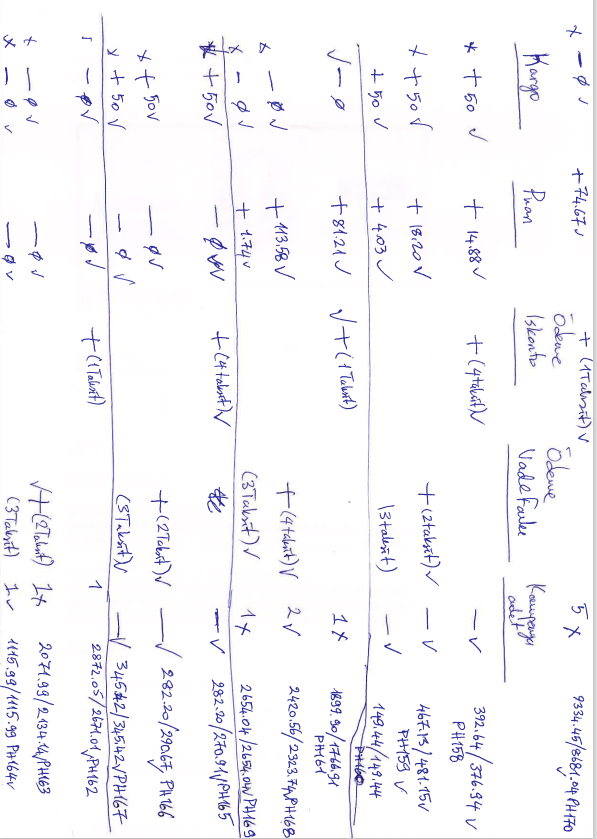 x - ø ✓ + 74.67 ✓ + (1Taksit) ✓ 5 x 9334.45/8681.04 PH170 ✓
Kargo Puan Ödeme Iskonto Ödeme Vade Farkı Kampanya adet
x + 50 ✓ + 14.88 ✓ + (4taksit) ✓ — ✓ 392.64/376.94 ✓ PH158
x + 50 ✓ + 18.20 ✓ + (2taksit) ✓ — ✓ 467.13/481.15 ✓ PH153 ✓
+ 50 ✓ + 4.03 ✓ (3taksit) — ✓ 149.44/149.44 PH160
✓ - ø + 81.21 ✓ ✓ + (1Taksit) 1 x 1899.90/1766.91 PH161
x - ø ✓ + 113.58 ✓ + (4taksit) ✓ 2 ✓ 2420.56/2323.74 ✓ PH168
x - ø ✓ + 1.74 ✓ (3Taksit) ✓ 1 x 2654.04/2654.04 ✓ PH169
x + 50 ✓ - ø ✓ + (4taksit) ✓ — ✓ 282.20/270.91 ✓ PH165
x + 50 ✓ - ø ✓ + (2Taksit) ✓ — ✓ 282.20/290.67 ✓ PH166
x + 50 ✓ - ø ✓ (3Taksit) ✓ — ✓ 345.42/345.42 ✓ PH167
- ø ✓ - ø ✓ + (1Taksit) 1 2872.05/2671.01 ✓ PH162
x - ø ✓ - ø ✓ ✓ + (2Taksit) 1 x 2071.99/2134.14 ✓ PH163
x - ø ✓ - ø ✓ (3Taksit) 1 ✓ 1115.99/1115.99 PH164 ✓